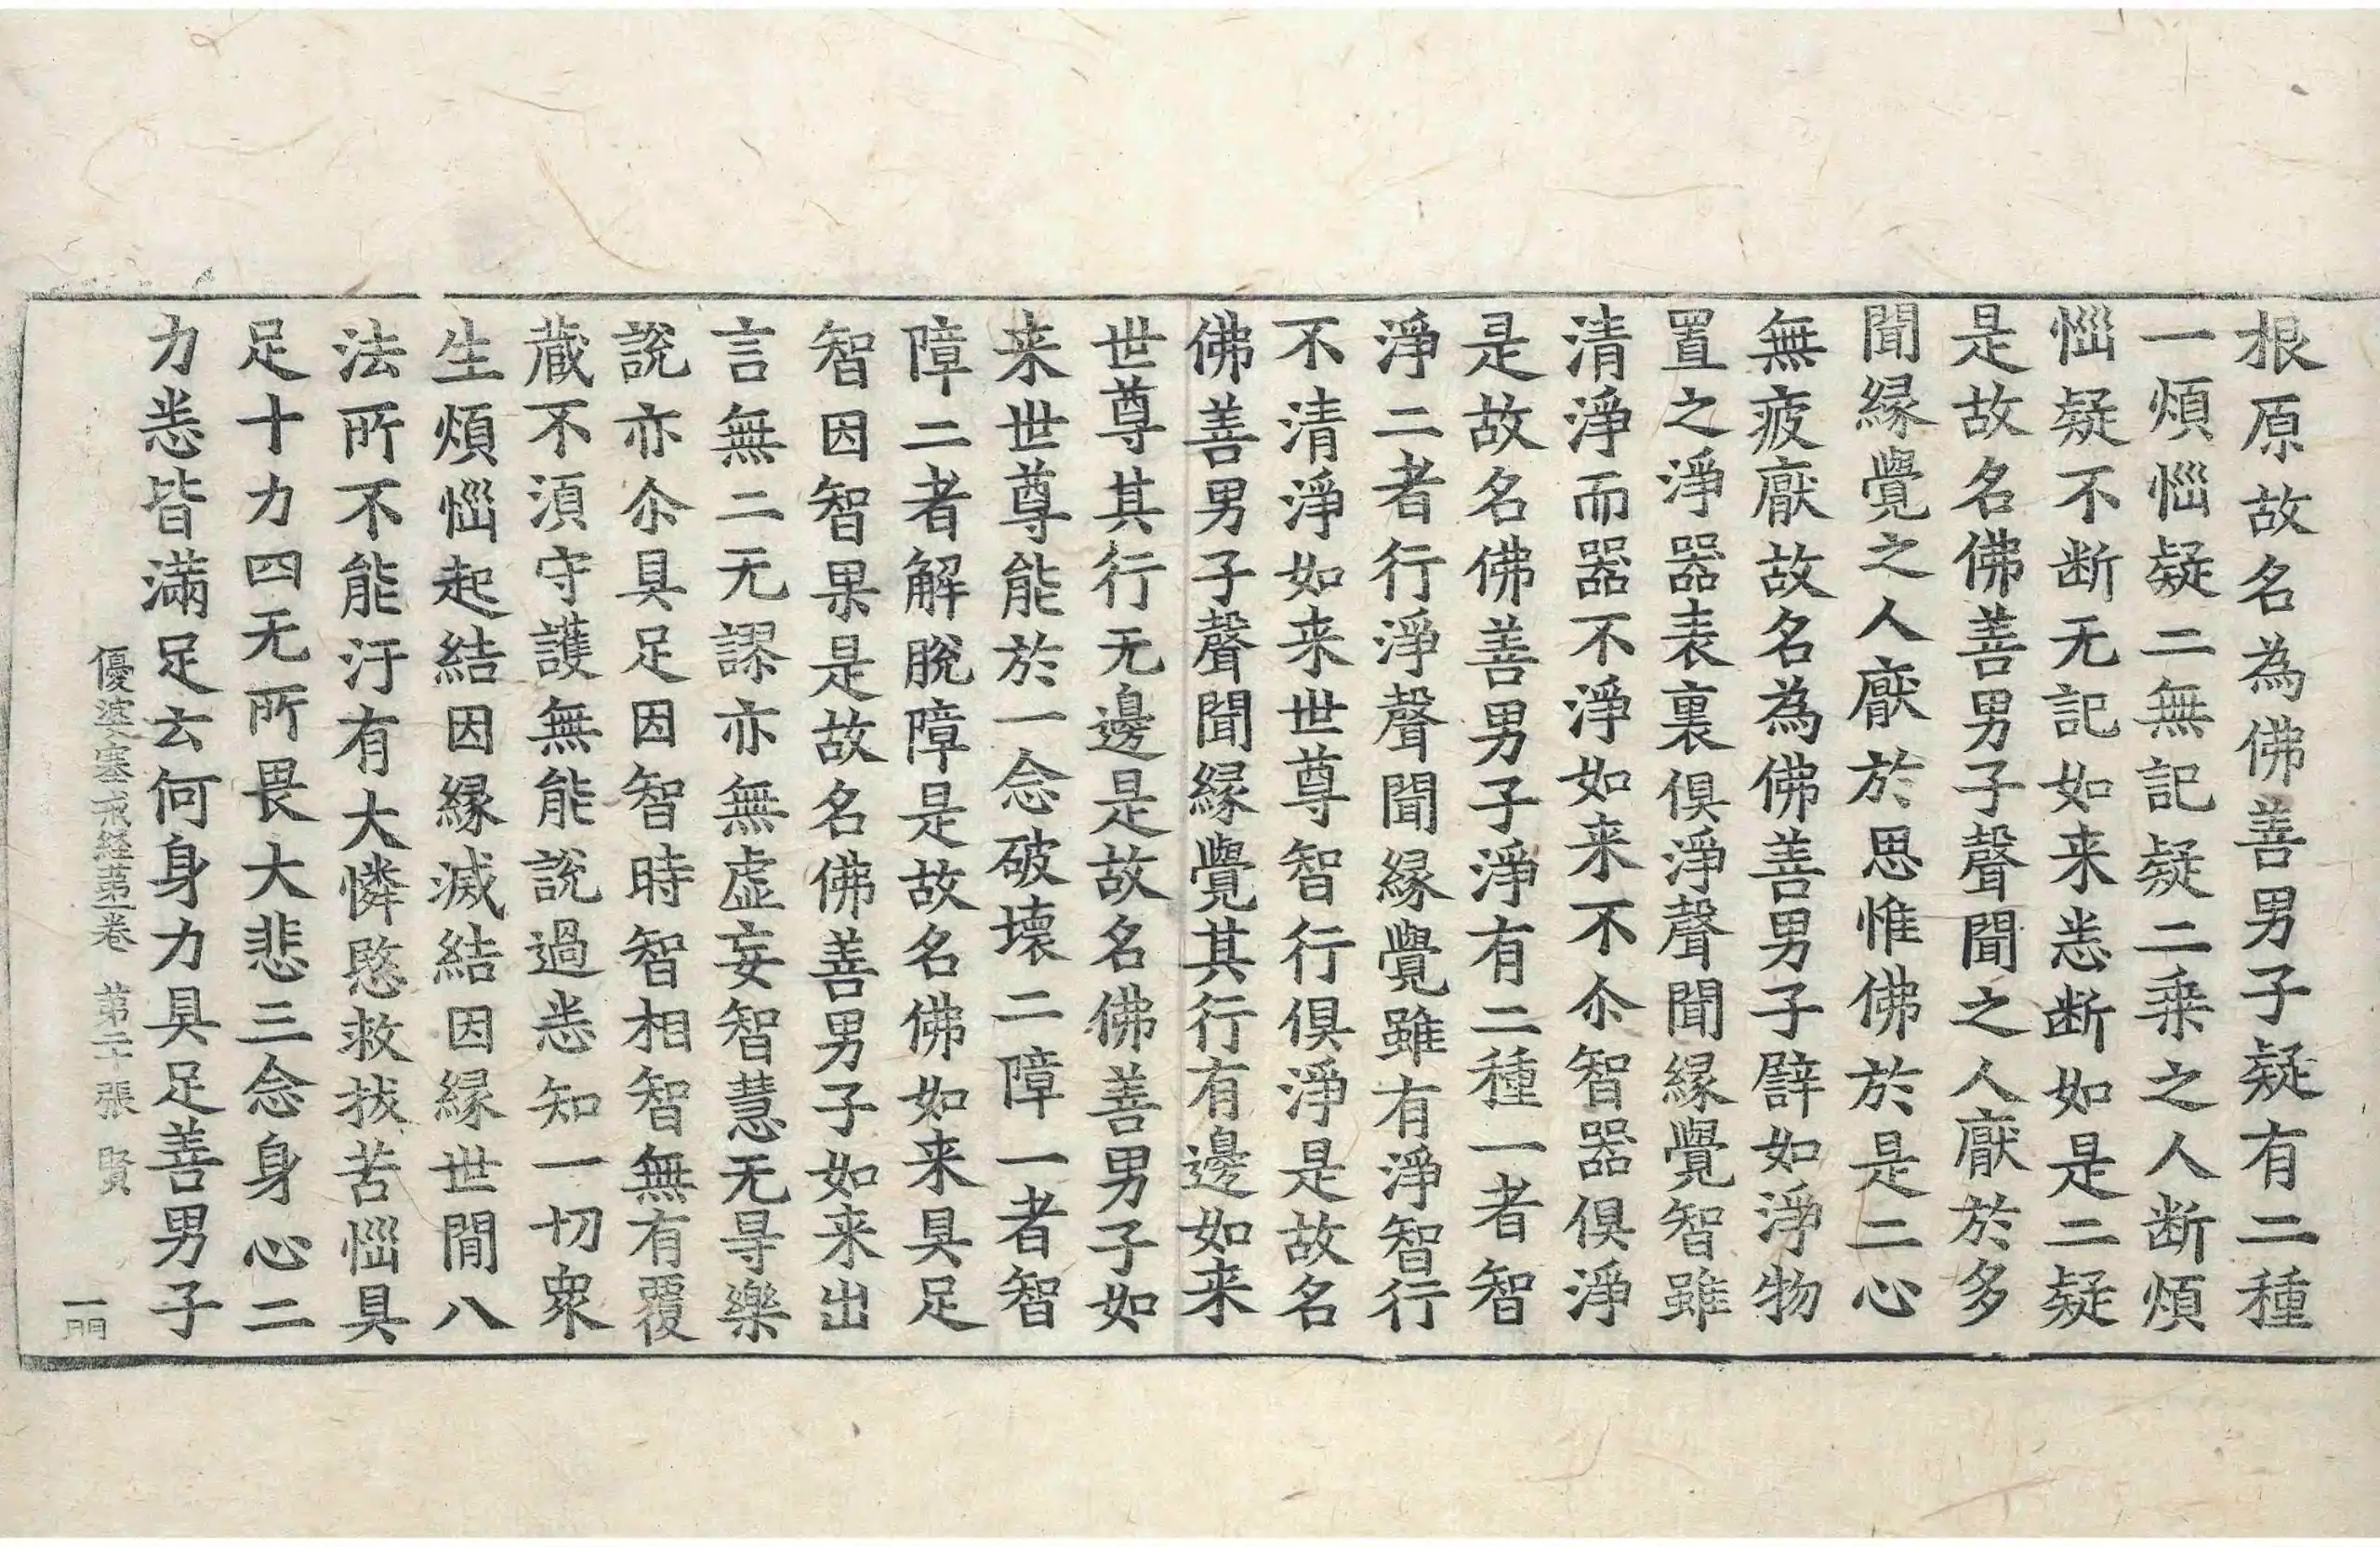 根原故名為佛善男子疑有二種
一煩惱疑二無記疑二乗之人断煩
惱疑不断无記如来悉断如是二疑
是故名佛善男子聲聞之人厭於多
聞縁覺之人厭於思惟佛於是二心
無疲厭故名為佛善男子辟如淨物
置之淨器表裏俱淨聲聞縁覺智雖
清淨而器不淨如来不尒智器俱淨
是故名佛善男子淨有二種一者智
淨二者行淨聲聞縁覺雖有淨智行
不清淨如来世尊智行俱淨是故名
佛善男子聲聞縁覺其行有邊如来
世尊其行无邊是故名佛善男子如
来世尊能於一念破壞二障一者智
障二者解脫障是故名佛如来具足
智因智果是故名佛善男子如来出
言無二无謬亦無虛妄智慧无㝵樂
說亦尒具足因智時智相智無有覆
蔵不湏守護無能說過悉知一切衆
生煩惱起結因縁滅結因縁世間八
法所不能汙有大憐愍救拔苦惱具
足十力四无所畏大悲三念身心二
力悉皆滿足云何身力具足善男子
優婆塞戒経苐一卷 苐二十張 賢